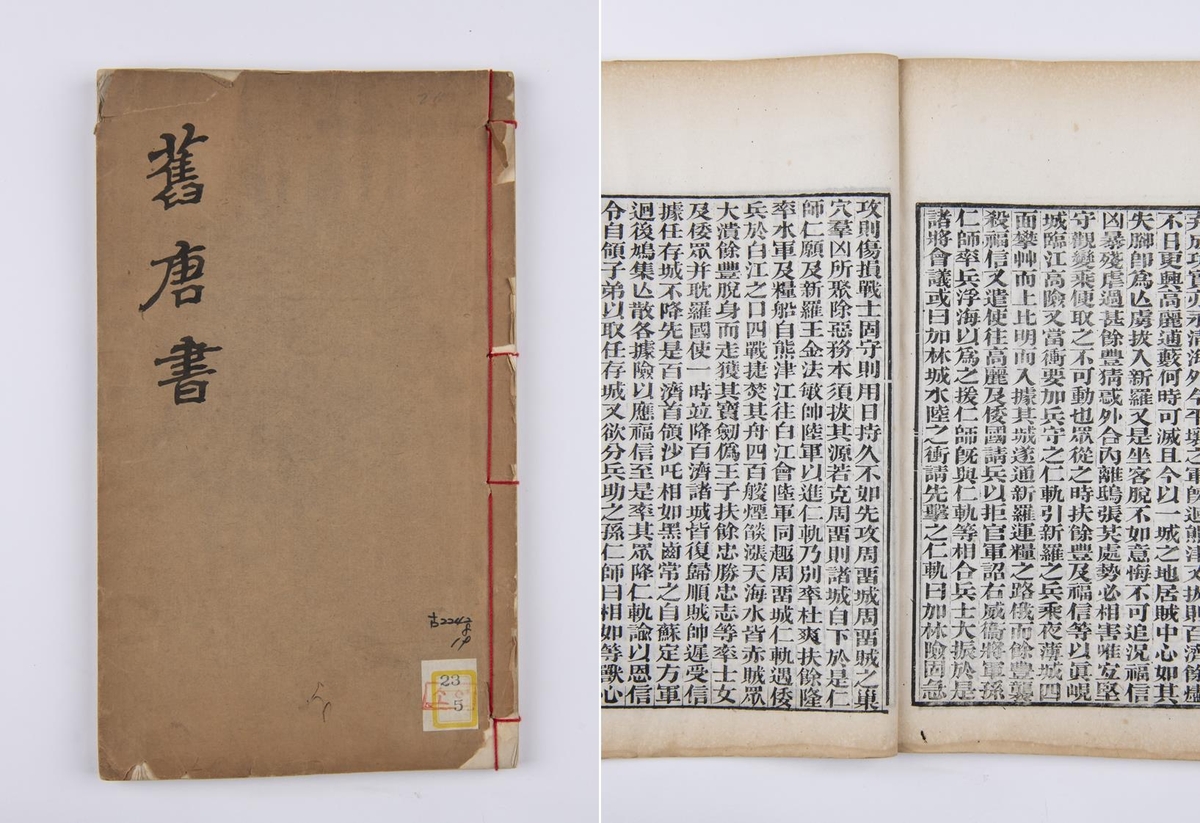 舊唐書
23
5
不日更興高麗逋藪何時可滅且今以一城之地居賊中心如其
失腳卽爲亾虜拔入新羅又是坐客脫不如意悔不可追況福信
凶暴殘虐過甚餘豐猜惑外合內離鴟張共處勢必相害唯宜堅
守觀變乘便取之不可動也眾從之時扶餘豐及福信等以眞峴
城臨江高險又當衝要加兵守之仁軌引新羅之兵乘夜薄城四
面攀艸而上比明而入據其城遂通新羅運糧之路俄而餘豐襲
殺福信又遣使往高麗及倭國請兵以拒官軍詔右威衞將軍孫
仁師率兵浮海以爲之援仁師旣與仁軌等相合兵士大振於是
諸將會議或曰加林城水陸之衝請先擊之仁軌曰加林險固急
攻則傷損戰士固守則用日持久不如先攻周畱城周畱賊之巢
穴羣凶所聚除惡務本須拔其源若克周畱則諸城自下於是仁
師仁願及新羅王金法敏帥陸軍以進仁軌乃別率杜爽扶餘隆
率水軍及糧船自熊津江往白江會陸軍同趣周畱城仁軌遇倭
兵於白江之口四戰捷焚其舟四百艘煙燄漲天海水皆赤賊眾
大潰餘豐脫身而走獲其寶劒僞王子扶餘忠勝忠志等率士女
及倭眾并耽羅國使一時竝降百濟諸城皆復歸順賊帥遲受信
據任存城不降先是百濟首領沙吒相如黑齒常之自蘇定方軍
迴後鳩集亾散各據險以應福信至是率其眾降仁軌諭以恩信
令自領子弟以取任存城又欲分兵助之孫仁師曰相如等獸心